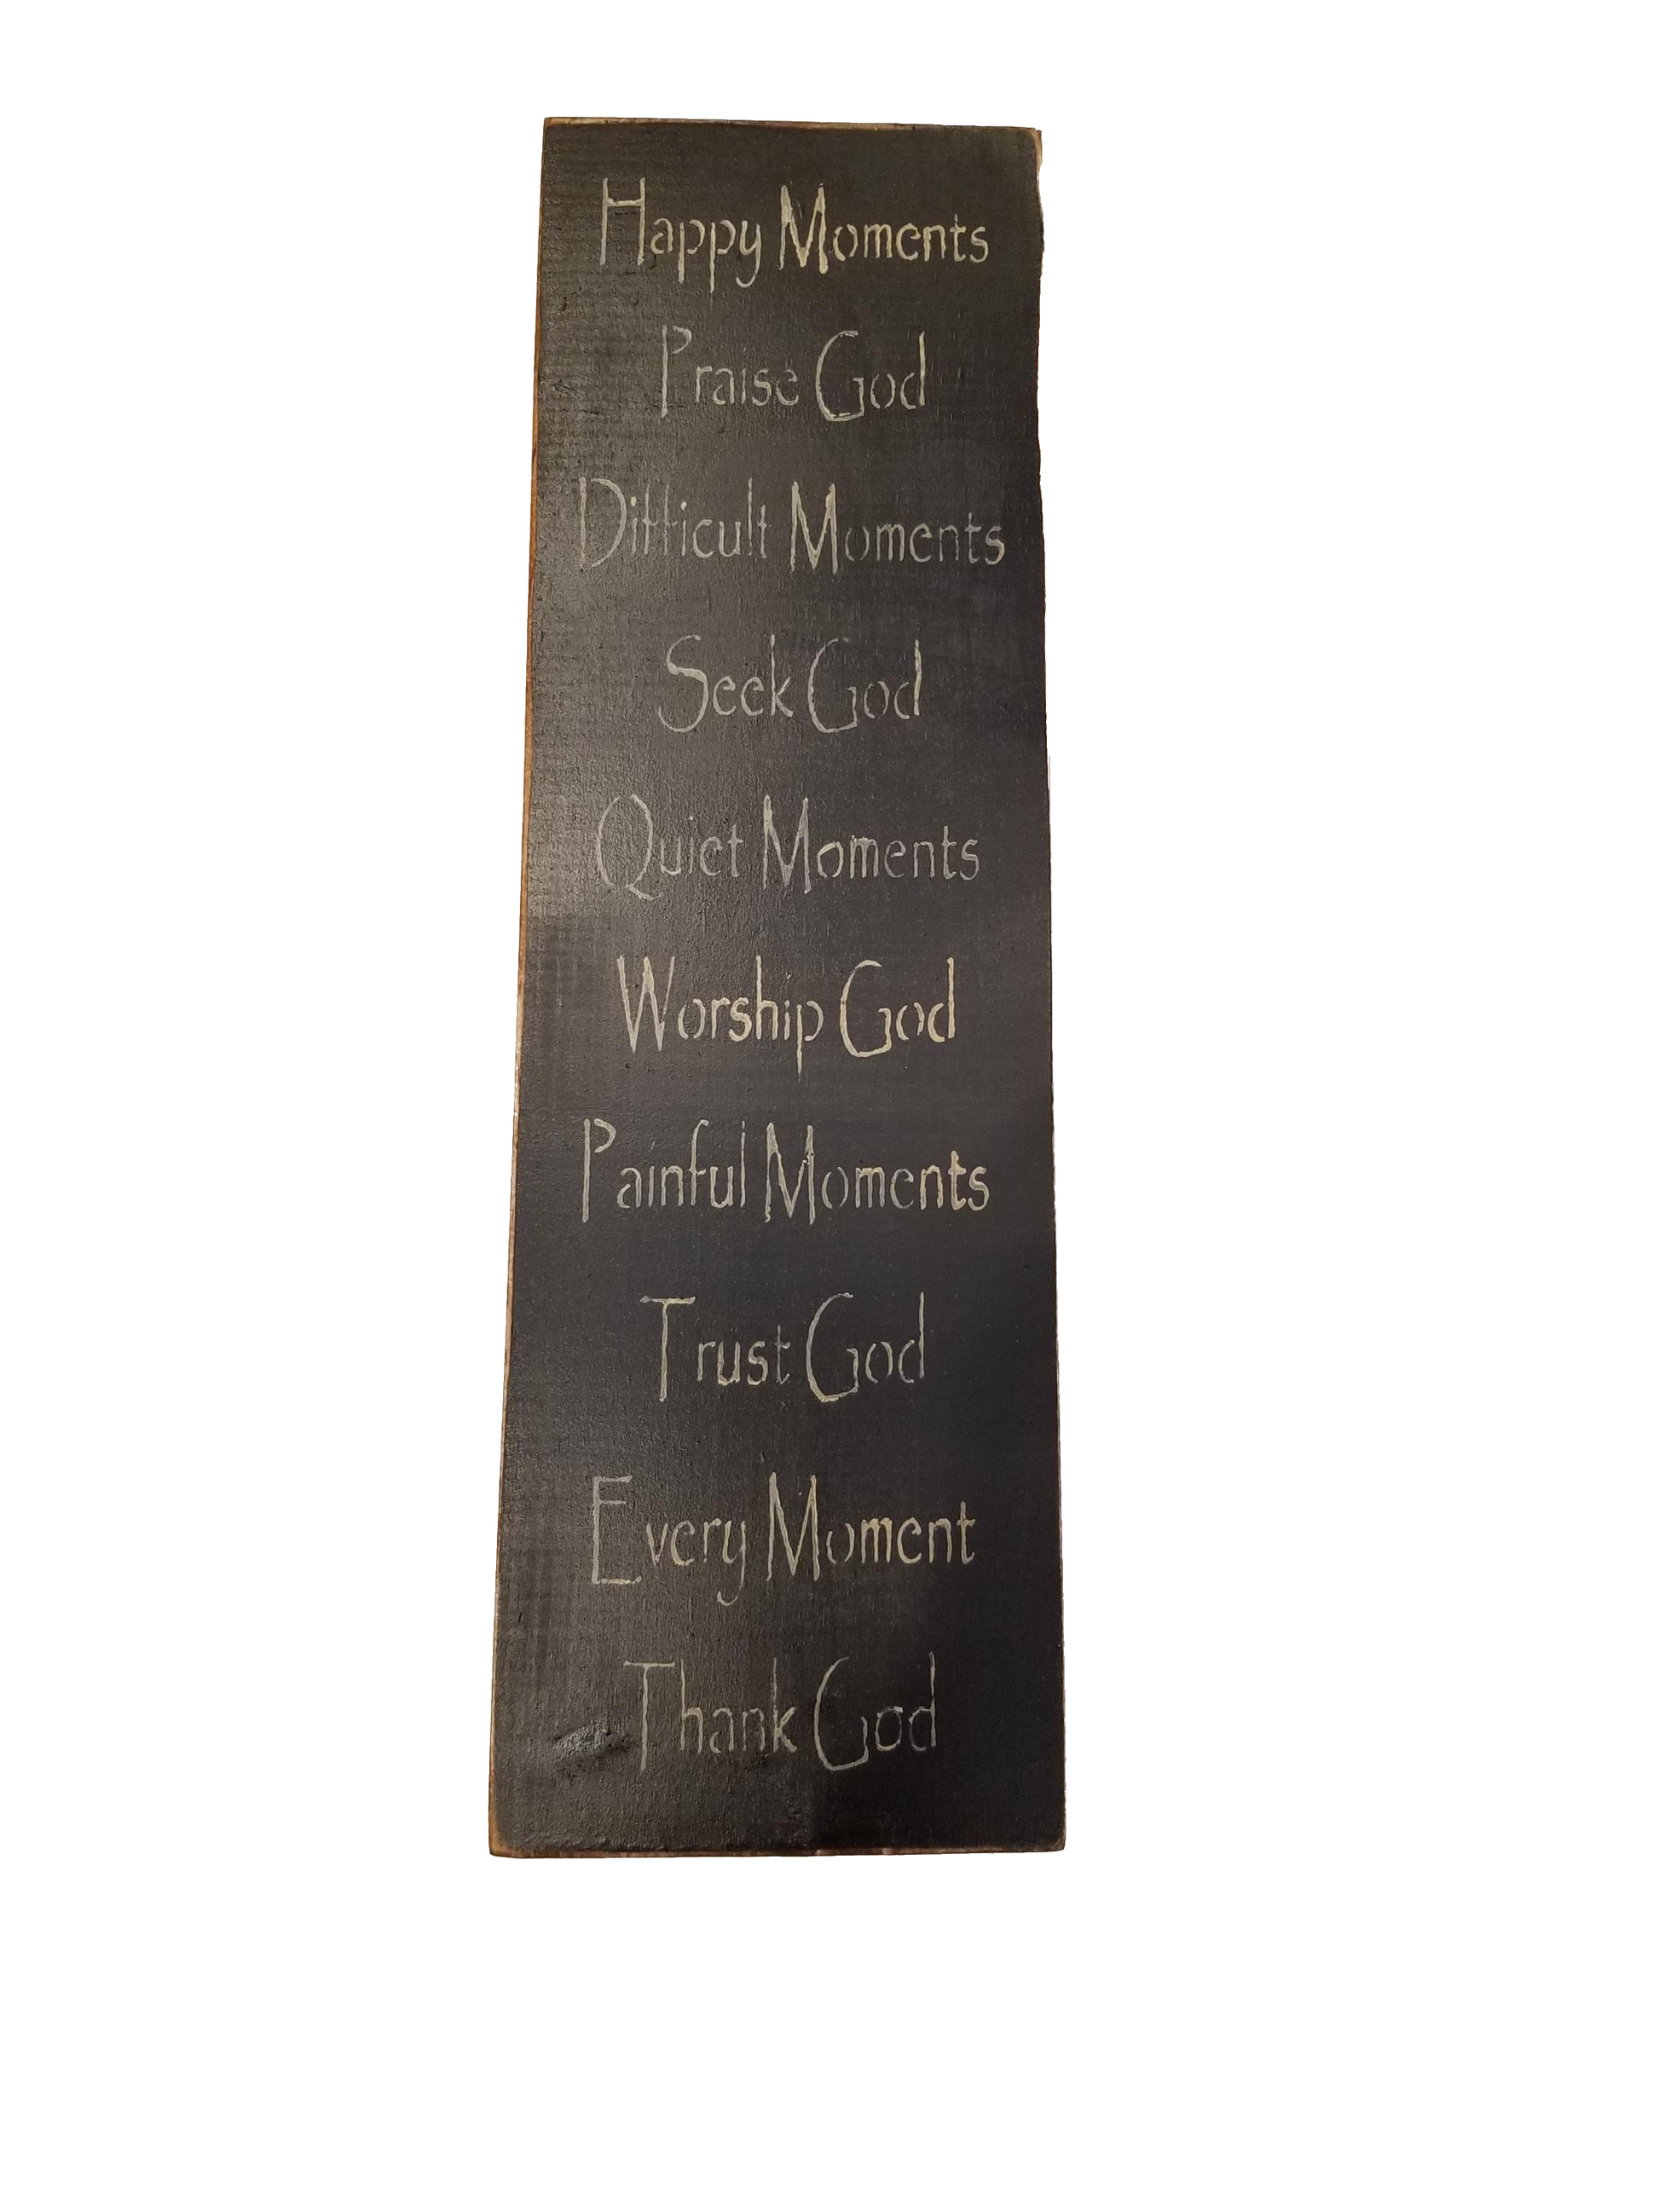 Happy Moments
Praise God
Difficult Moments
Seek God
Quiet Moments
Worship God
Painful Moments
Trust God
Every Moment
Thank God